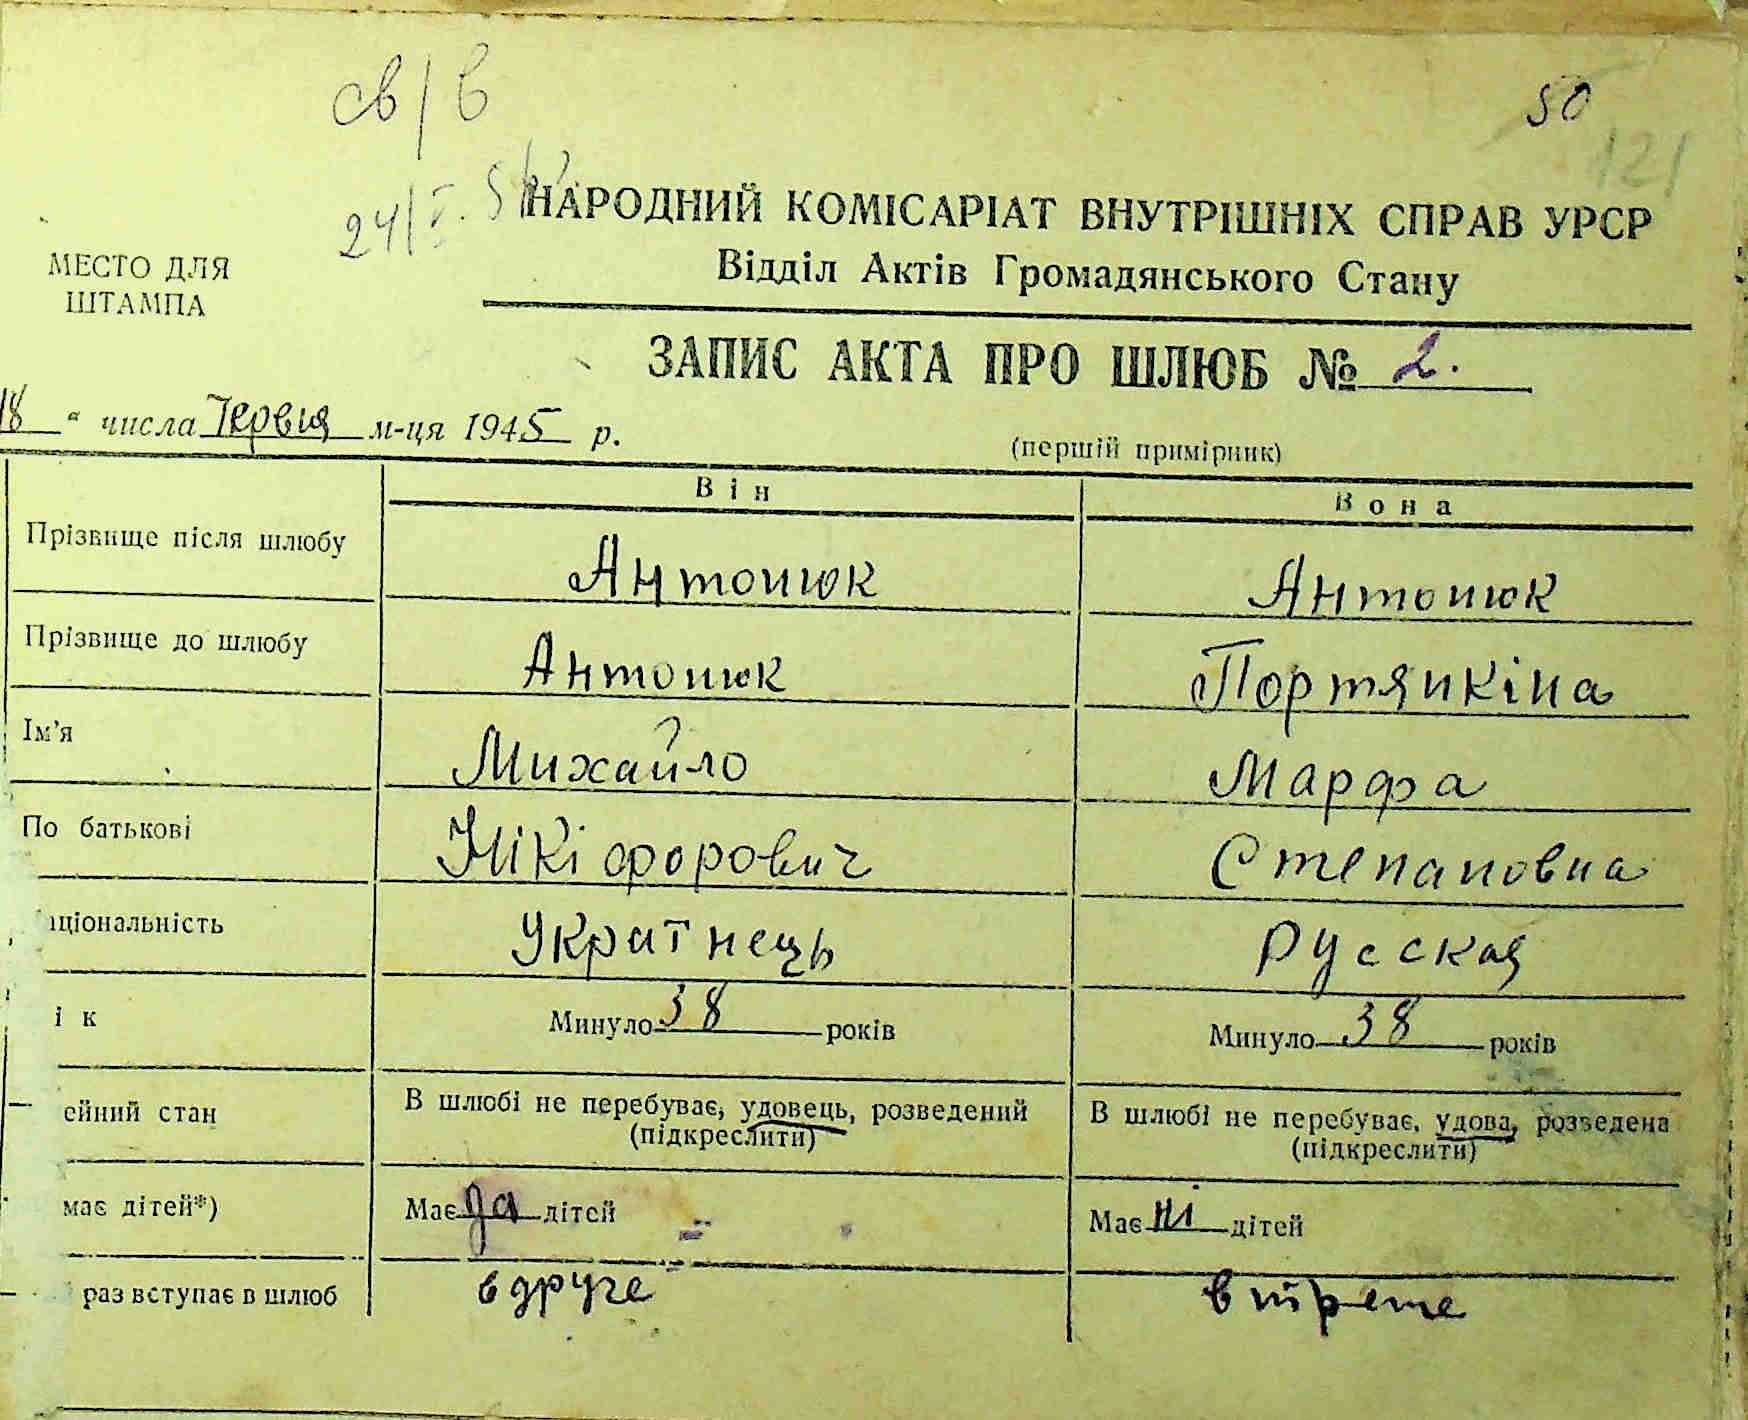 св/в
50
121
24/I.
НАРОДНИЙ КОМІСАРІАТ ВНУТРІШНІХ СПРАВ УРСР
Відділ Актів Громадянського Стану
МЕСТО ДЛЯ
ШТАМПА
ЗАПИС АКТА ПРО ШЛЮБ № 2.
18 " числа Червня м-ця 1945 р.
(першій примірник)
Він Вона
Прізвище після шлюбу Антонюк Антонюк
Прізвище до шлюбу Антонюк Портянкіна
Ім'я Михайло Марфа
По батькові Нікіфорович Степановна
аціональність Українець Русская
ік Минуло 38 років Минуло 38 років
ейний стан В шлюбі не перебуває, удовець, розведений В шлюбі не перебуває, удова, розведена
(підкреслити) (підкреслити)
має дітей*) Має да дітей Має ні дітей
раз вступає в шлюб вдруге втрете